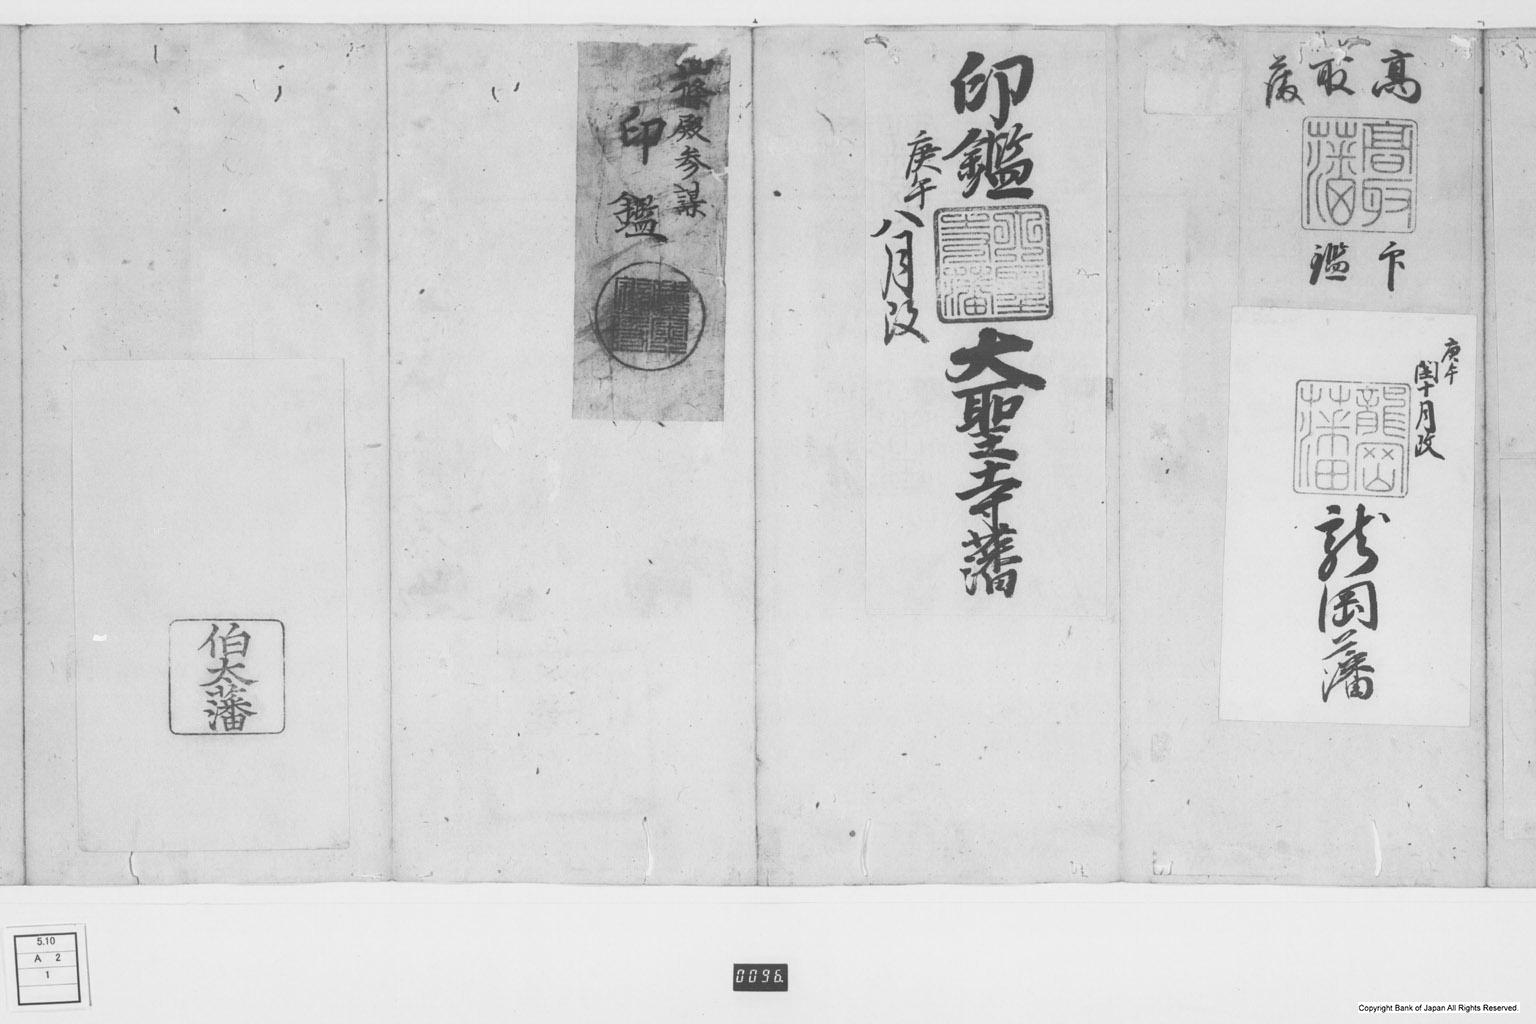 高
取
藩
高取
藩
印
鑑
庚午
閏十月改
龍岡
藩
龍岡藩
印鑑
庚午
八月改
大聖
寺藩
大聖寺藩
殿参謀
印鑑
伯太藩
5.10
A 2
1
0096
Copyright Bank of Japan All Rights Reserved.